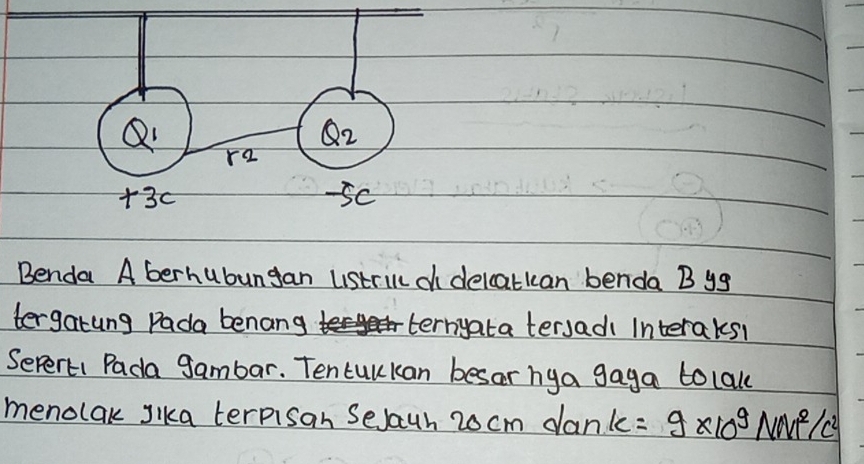 Q1 Q2
r2
+3c -5c
Benda A berhubungan listrik di dekatkan benda B yg
tergatung Pada benang ternyata terjadi Interaksi
Seperti Pada gambar. Tentukkan besar nya gaya tolak
menolak jika terpisah Sejauh 20 cm dan k = 9 x10⁹ NM²/c²